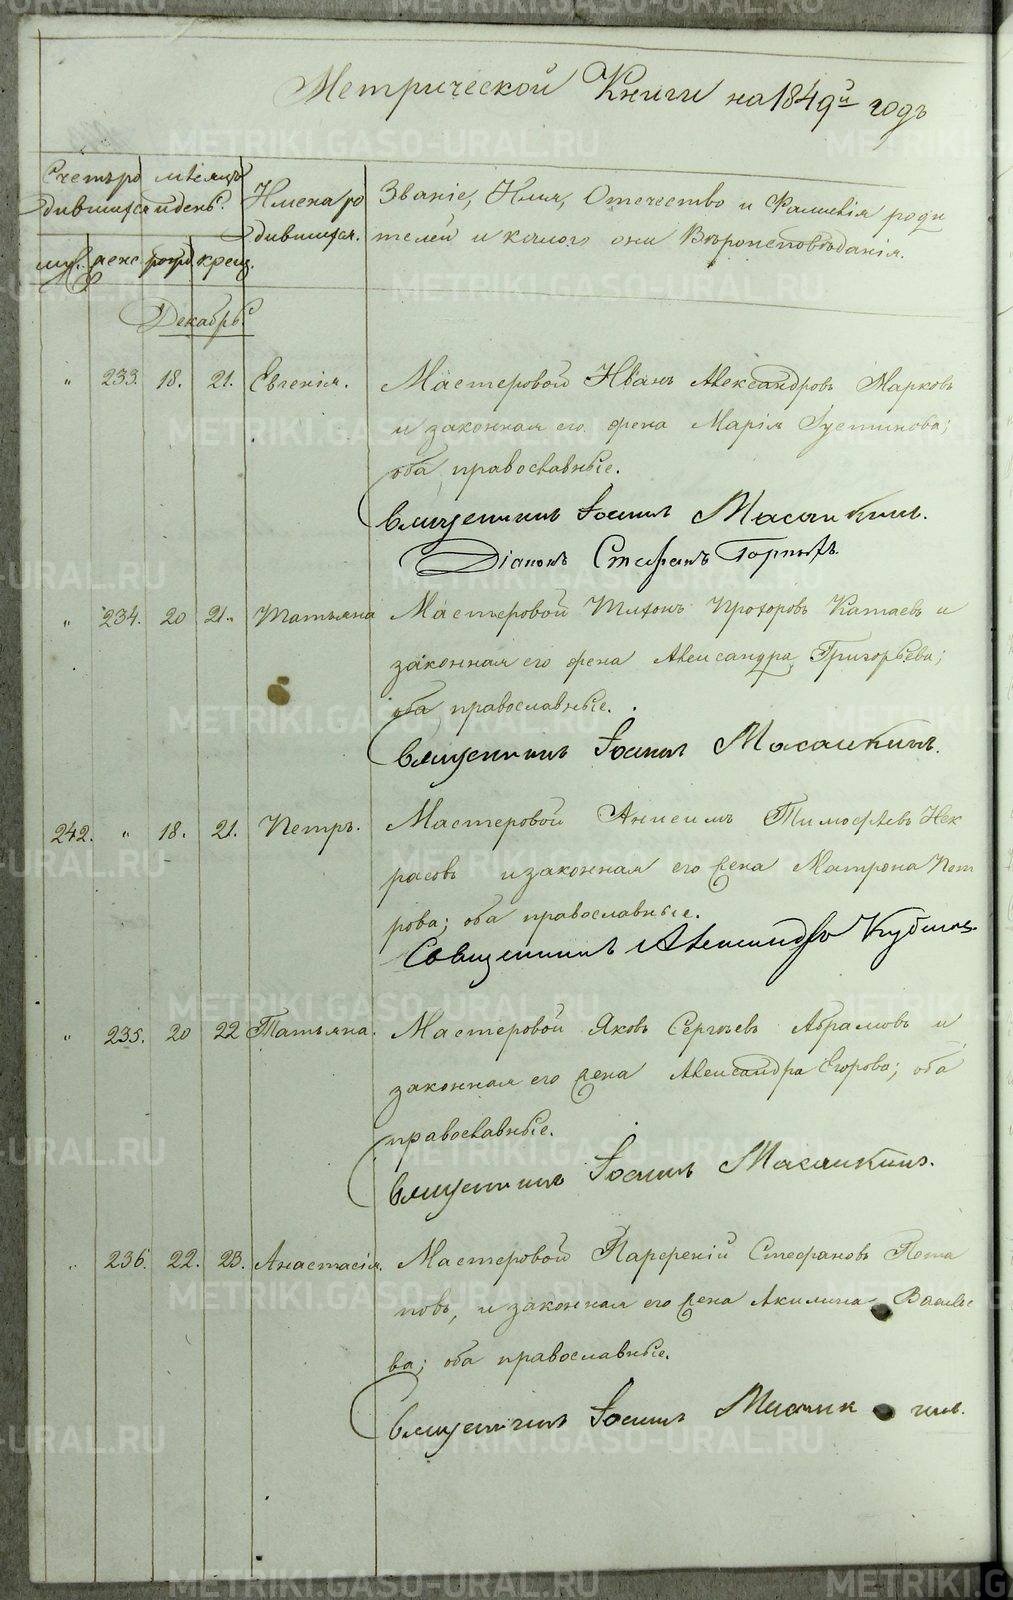 Метрической Книги на 1849й годъ
Счетъ ро мѣсяцъ
дившихся и день.
Имена ро
дившихся.
Званіе, Имя, Отечество и Фамилія роди
телей и какого они Вѣроисповѣданія.
муж. женс. рожд. крещ.
Декабрь.
" 233. 18. 21. Евгенія. Мастеровой Иванъ Александровъ Марковъ
и законная его жена Марія Іустинова;
оба православные.
Священникъ Іоаннъ Масликинъ.
Діаконъ Стефанъ Горныхъ.
" 234. 20 21. Татьяна Мастеровой Тихонъ Прохоровъ Катаевъ и
законная его жена Александра Григорьева;
оба православные.
Священникъ Іоаннъ
242. " 18. 21. Петръ. Мастеровой Анисимъ Тимофѣевъ Нек
расовъ и законная его жена Матрона Пет
рова; оба православные.
Священникъ Александръ
" 235. 20 22 Татьяна. Мастеровой Яковъ Сергѣевъ Абрамовъ и
законная его жена Александра Егорова; оба
православные.
Священникъ Іоаннъ
" 236. 22. 23. Анастасія. Мастеровой Парфеній Стефановъ Пота
повъ, и законная его жена Акилина Василье
ва; оба православные.
Священникъ Іоаннъ
METRIKI.GASO-URAL.RU